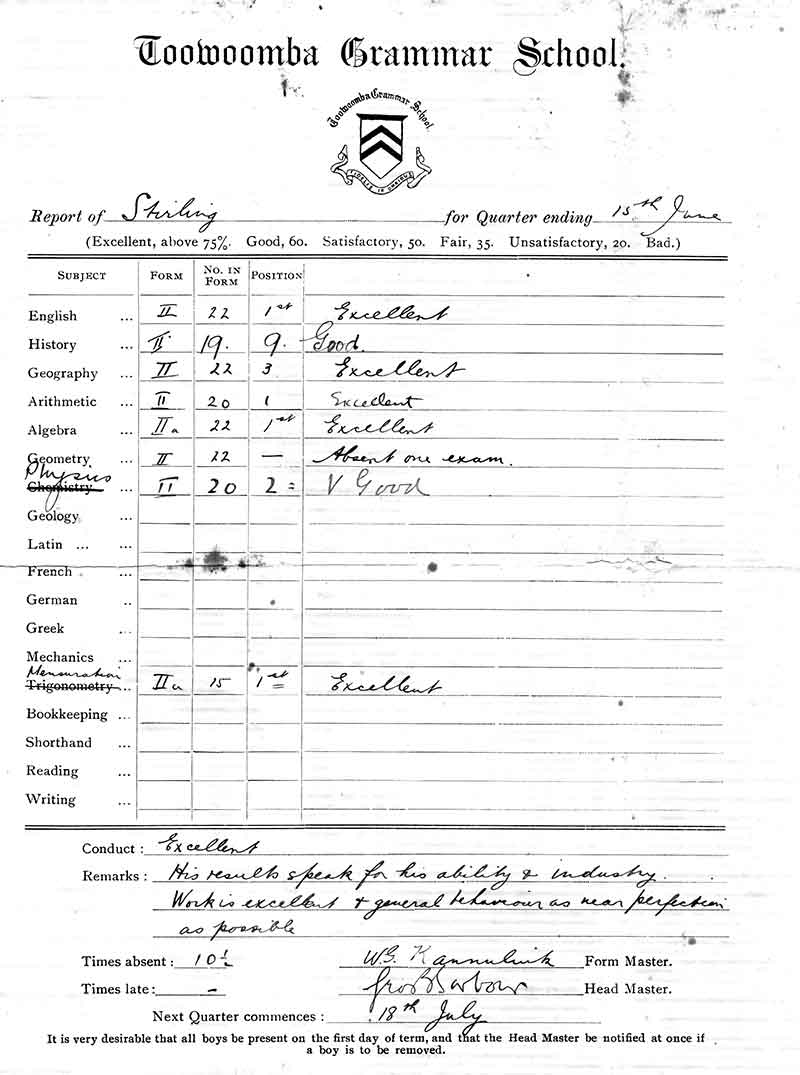 Toowoomba Grammar School.
Toowoomba Grammar School.
FIDELIS IN OMNIBUS
Report of Stirling for Quarter ending 15th June
(Excellent, above 75%. Good, 60. Satisfactory, 50. Fair, 35. Unsatisfactory, 20. Bad.)
SUBJECT FORM No. IN FORM POSITION
English ... II 22 1st Excellent
History ... II 19. 9. Good.
Geography ... II 22 3 Excellent
Arithmetic ... II 20 1 Excellent
Algebra ... IIa 22 1st Excellent
Geometry ... II 22 — Absent one exam.
Physics
Chemistry ... II 20 2 = V Good
Geology ...
Latin ... ...
French ...
German ..
Greek ...
Mechanics ...
Mensuration
Trigonometry ... IIa 15 1st = Excellent
Bookkeeping ...
Shorthand ...
Reading ...
Writing ...
Conduct : Excellent
Remarks : His results speak for his ability & industry.
Work is excellent & general behaviour as near perfection
as possible
Times absent : 10½ W.G. Form Master.
Times late : - Barbour Head Master.
Next Quarter commences : 18th July
It is very desirable that all boys be present on the first day of term, and that the Head Master be notified at once if
a boy is to be removed.